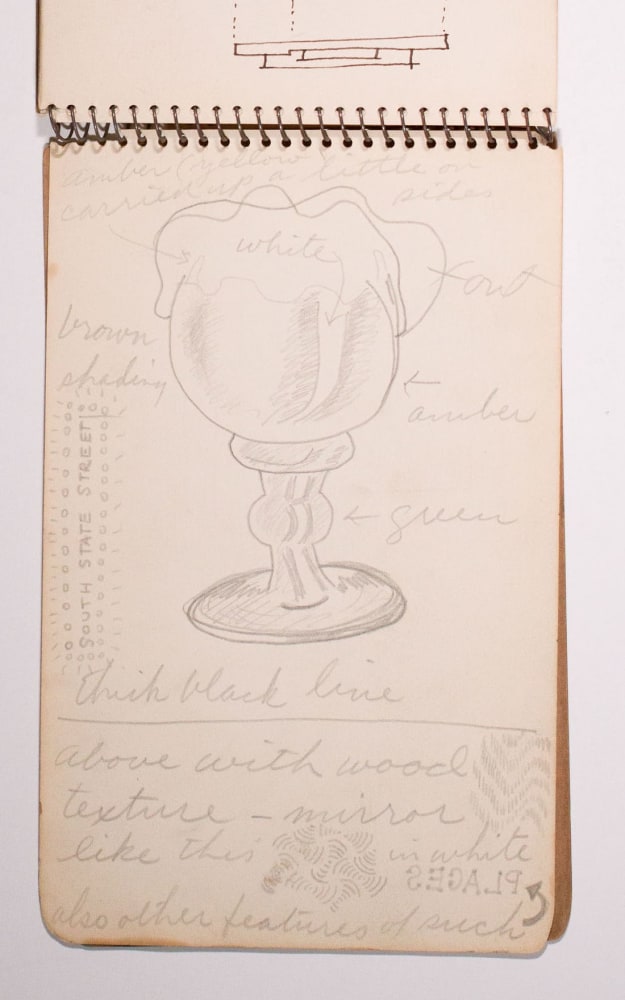 amber (yellow
carried up a little on
sides
white
font
brown
shading
amber
SOUTH STATE STREET
green
thick black line
above with wood
texture - mirror
like this in white
PLACES
also other features of such